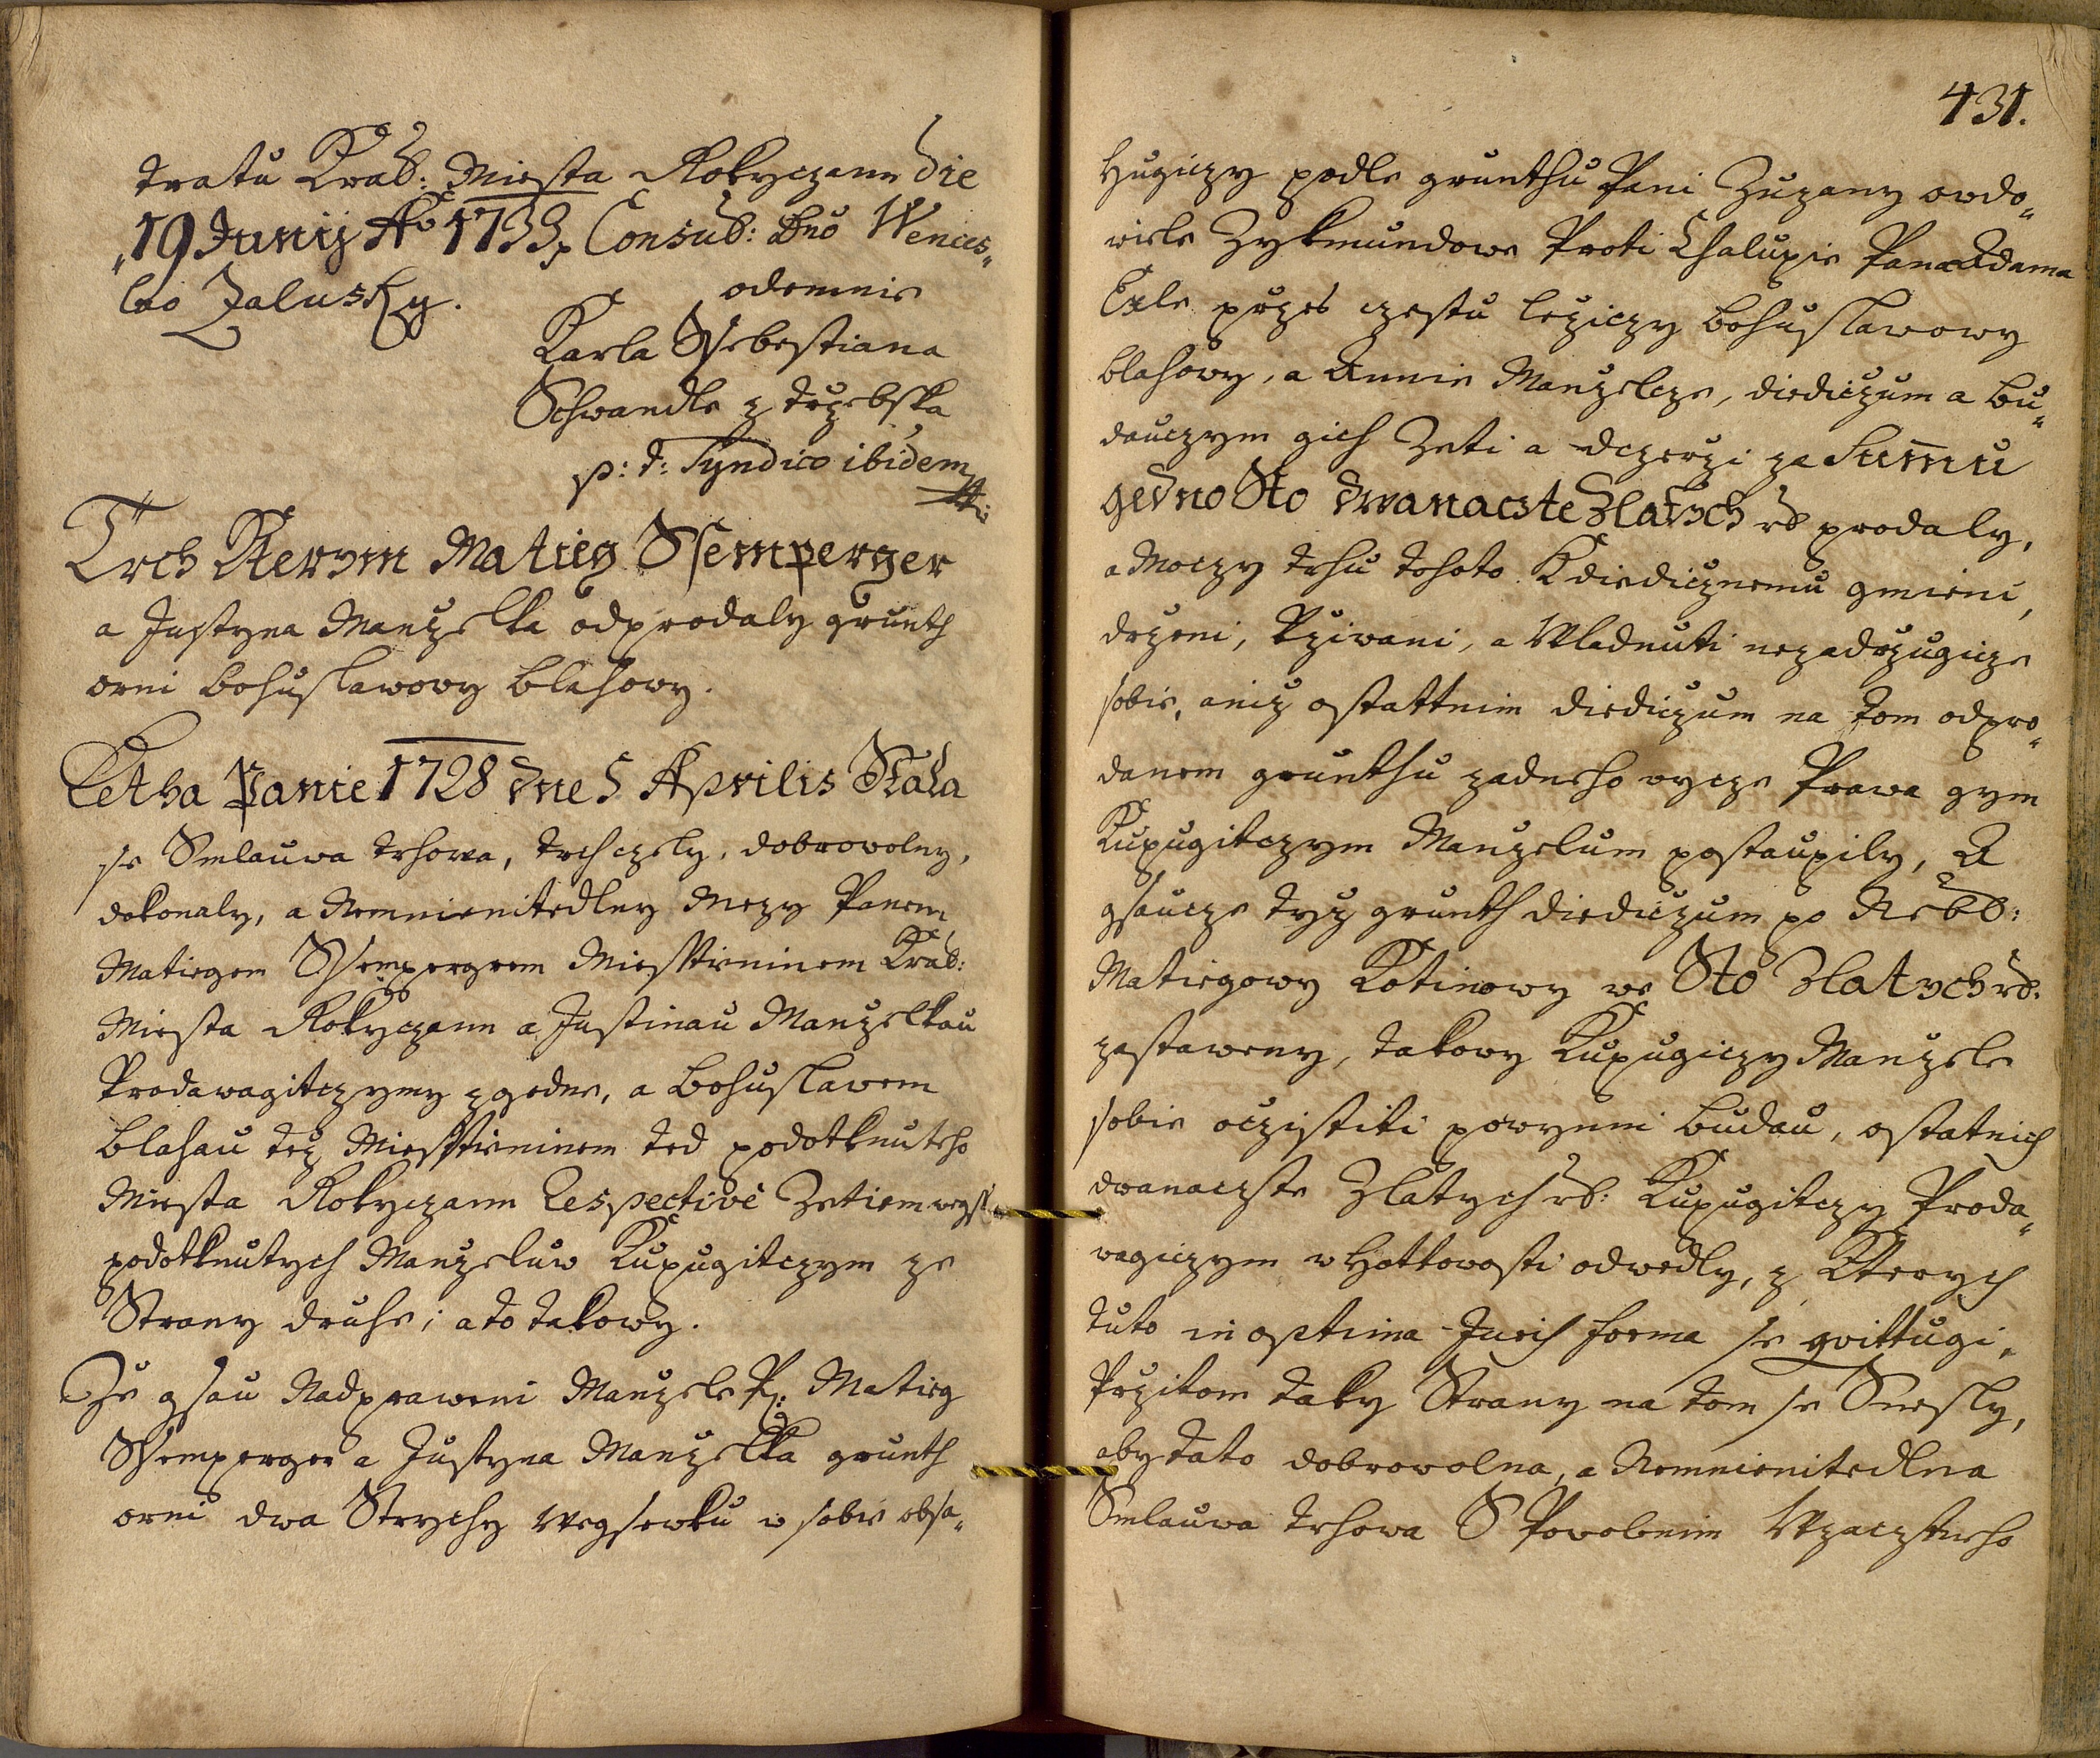 tratu Kral: Miesta Rokyczann die
19 Junij Ao 1733. Consul: Dno Wences„
lao Zalusky.
odemnie
Karla Ssebestiana
Schwandle z Trzebska
p: t: Syndico ibidem
Trch Kterym Matieg Ssemperger
a Justyna Manzelka odprodaly grunth
orni Bohuslawowy Blahowy.
Letha Panie 1728 dne 5 Aprilis Stala
se Smlauwa trhowa, trch czely, dobrowolny,
dokonaly, a Nemnienitedlny Mezy Panem
Matiegem Ssempergrem Miesstieninem Kral:
Miesta Rokyczann a Justinau Manzelkau
Prodawagitczymy z gedne, a Bohuslawem
Blahau tez Miesstieninem ted podotknuteho
Miesta Rokyczann Respectivè Zetiem wegss
podotknutych Manzeluw Kupugitczym ze
Strany druhe; a to takowy.
Ze gsau Nadpraweni Manzele P: Matieg
Ssemperger a Justyna Manzelka grunth
orni dwa Strychy Wegsewku w sobie obsa„
431.
hugiczy podle grunthu Pani Zuzany owdo„
wiele Zykmundowe Proti Chalupie Pana Adama
Exle przes czestu leziczy Bohuslawowy
Blahowy, a Annie Manzelcze, diediczum a Bu„
dauczym gich Zeti a dczerzi za Summu
gedno Sto dwanacste Zlatych rs prodaly,
a Moczy trhu tohoto K diedicznemu gmieni,
drzeni, Vziwani, a Wladnuti nezadrzugicze
sobie, aniz ostattnim diediczum na tom odpro„
danem grunthu zadneho wycze Prawa gym
Kupugitczym Manzelum postaupily, A
gsaucze tyz grunth diediczum po Nebl:
Matiegowy Kotinowy we Sto Zlatych rs:
zastaweny, takowy Kupugiczy Manzele
sobie oczistiti powynni Budau, ostatnich
dwanaczte Zlatych rs: Kupugitczy Proda„
wagiczym w Hottowosti odwedly, z Kterych
tuto in optima Juris forma se qvittugi.
Przitom taky Strany na tom se Snesly,
aby tato dobrowolna, a Nemnienitedlna
Smlauwa trhowa S Powolenim Wzaczneho